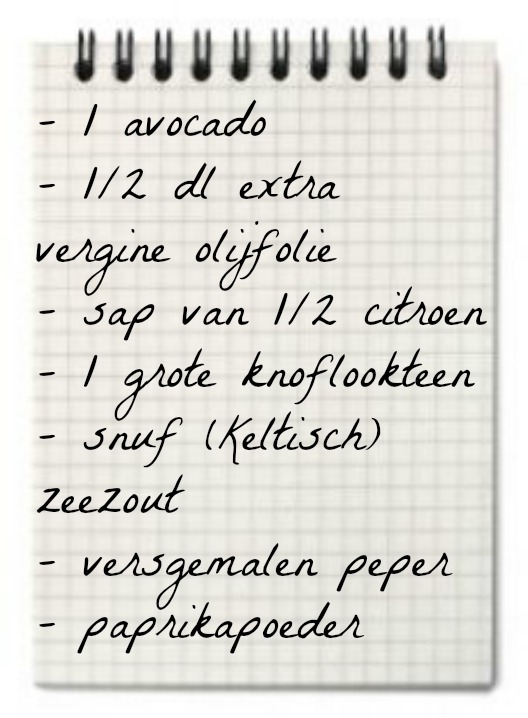 - 1 avocado
- 1/2 dl extra
vergine olijfolie
- sap van 1/2 citroen
- 1 grote knoflookteen
- snuf (Keltisch)
zeezout
- versgemalen peper
- paprikapoeder